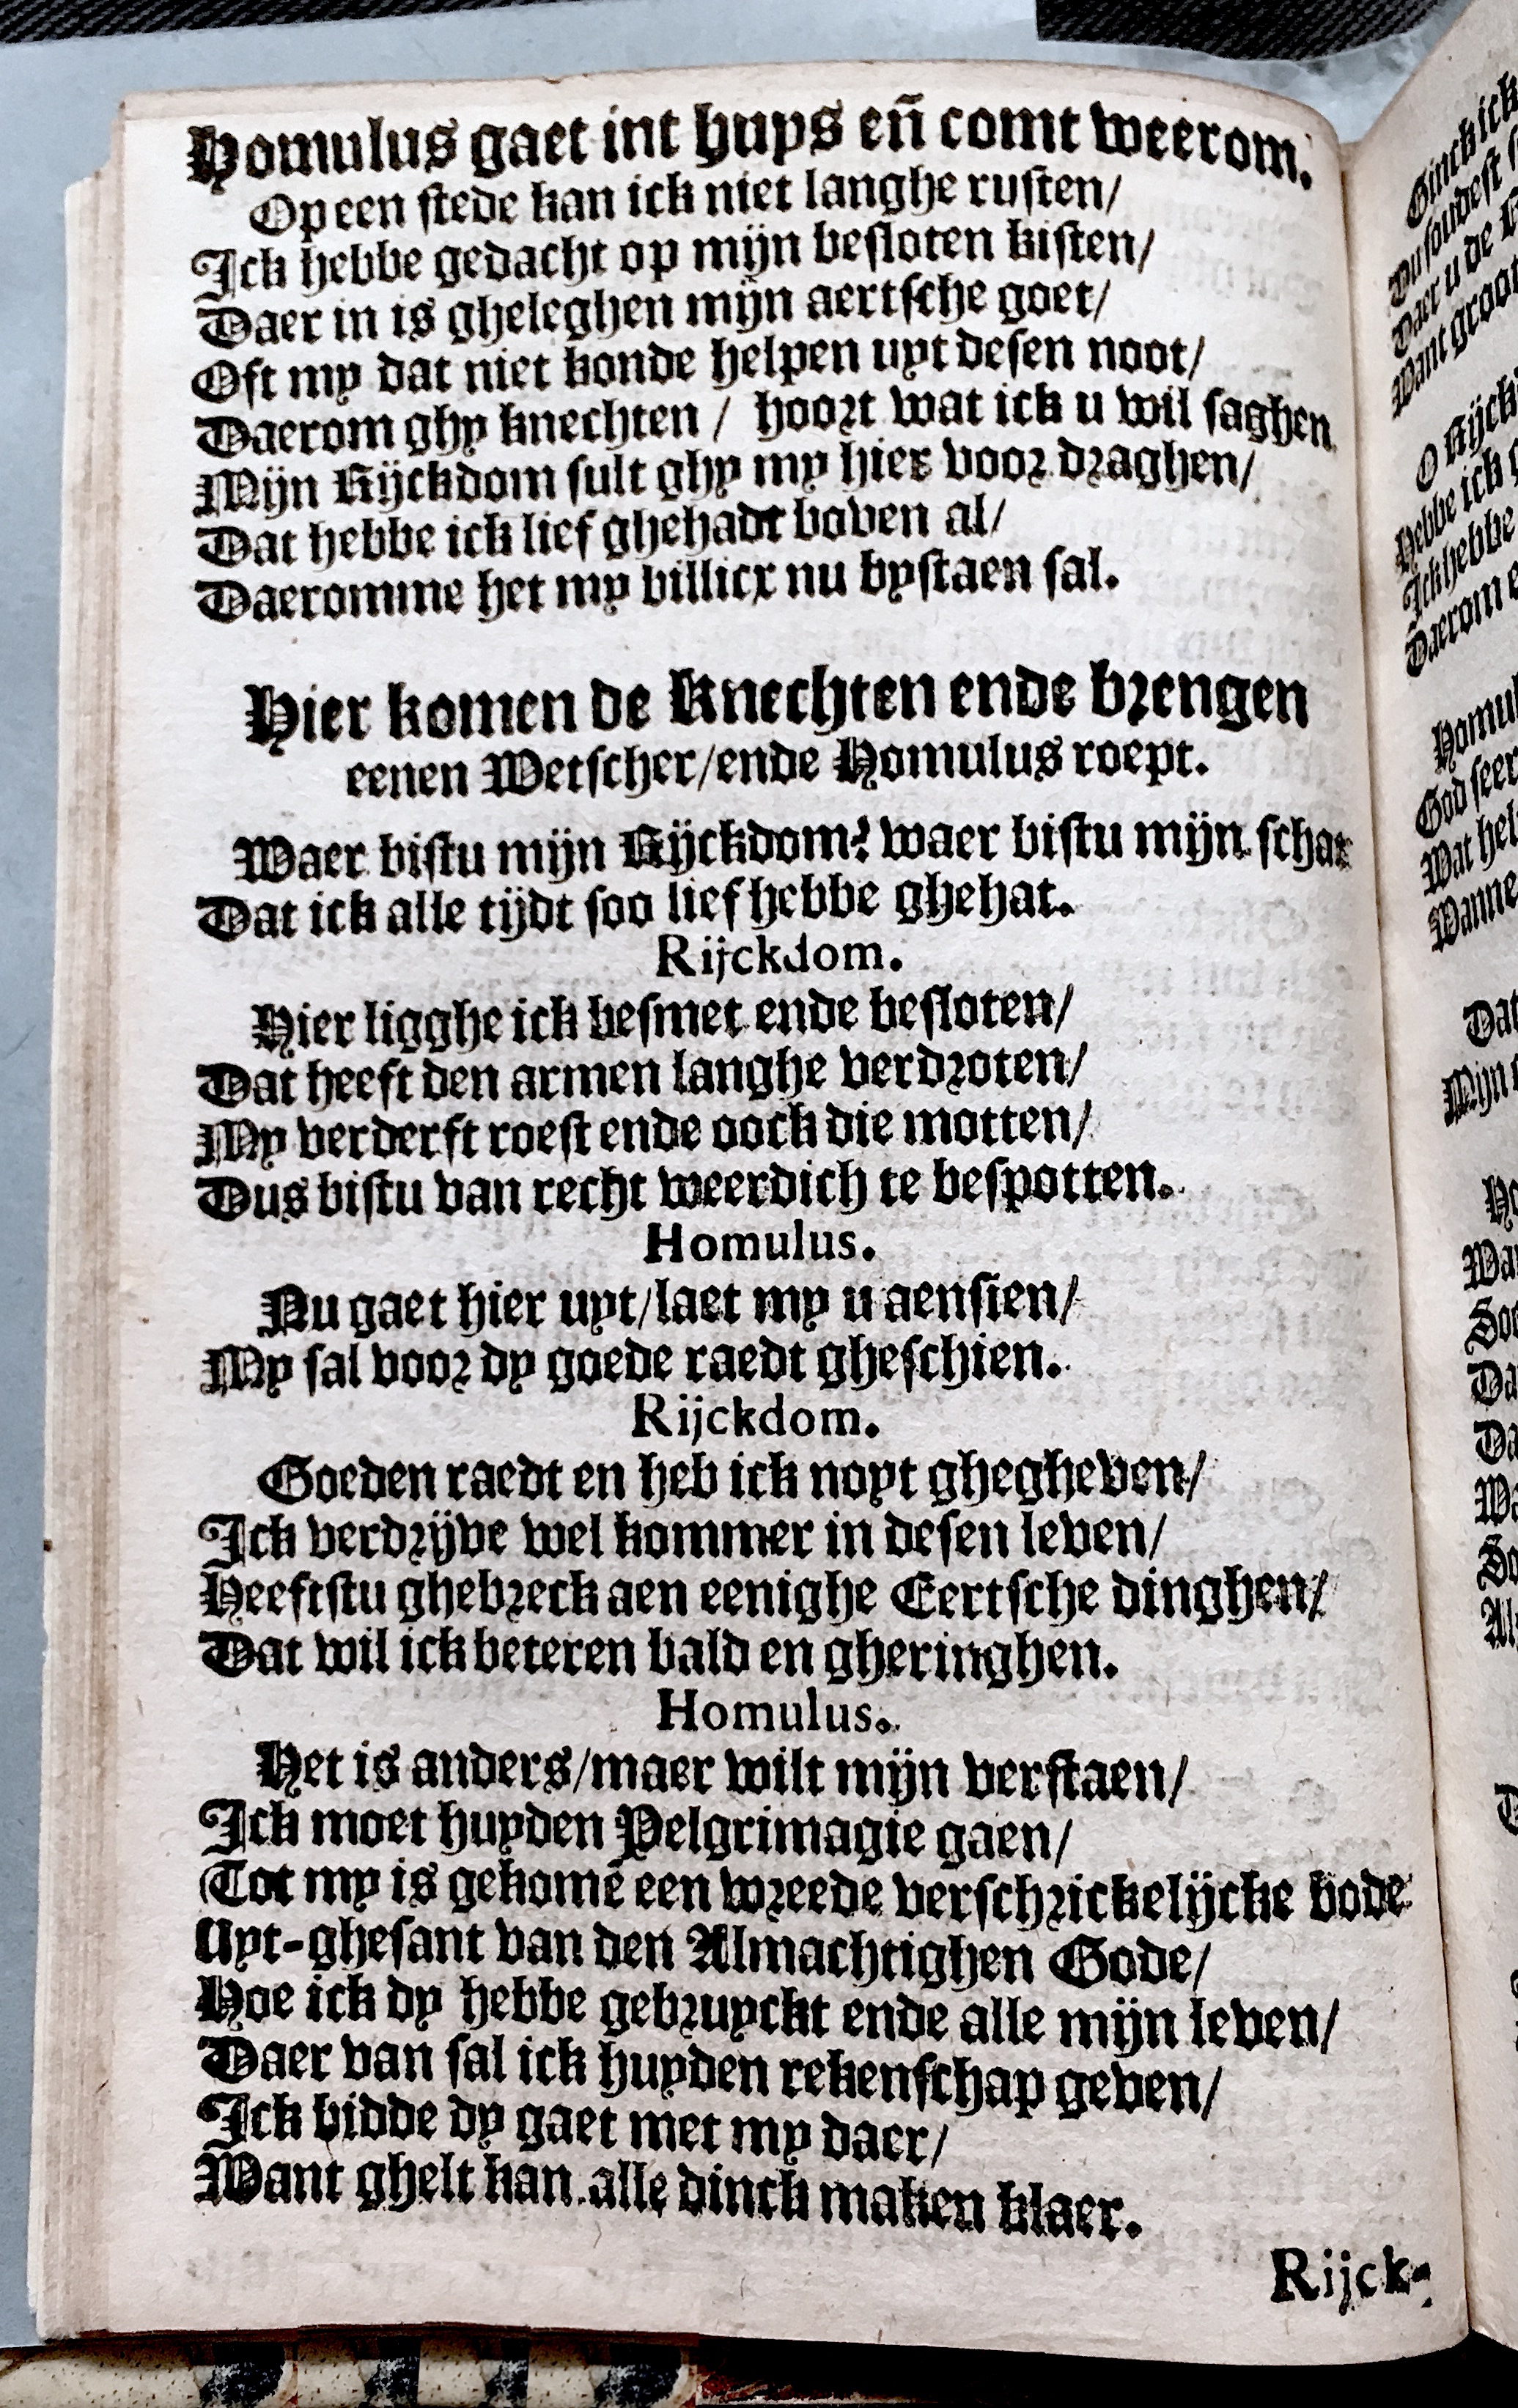 Homulus gaet int huys eñ comt weerom.
Op een stede kan ick niet langhe rusten/
Ick hebbe gedacht op mijn besloten kisten/
Daer in is gheleghen mijn aertsche goet/
Oft my dat niet konde helpen uyt desen noot/
Daerom ghy knechten / hoort wat ick u wil saghen
Mijn Rijckdom sult ghy my hier voor draghen/
Dat hebbe ick lief ghehadt boven al/
Daeromme het my billicx nu bystaen sal.
Hier komen de Knechten ende brengen
eenen Wetscher/ende Homulus roept.
Waer bistu mijn Rijckdom? waer bistu mijn schat
Dat ick alle tijdt soo lief hebbe ghehat.
Rijckdom.
Hier ligghe ick besmet ende besloten/
Dat heeft den armen langhe verdroten/
My verderft roest ende oock die motten/
Dus bistu van recht weerdich te bespotten.
Homulus.
Nu gaet hier uyt/laet my u aensien/
My sal voor dy goede raedt gheschien.
Rijckdom.
Goeden raedt en heb ick noyt ghegheven/
Ick verdrijve wel kommer in desen leven/
Heeftstu ghebreck aen eenighe Eertsche dinghen/
Dat wil ick beteren bald en gheringhen.
Homulus.
Het is anders/maer wilt mijn verstaen/
Ick moet huyden Pelgrimagie gaen/
Tot my is gekomē een wreede verschrickelijcke bode
Uyt-ghesant van den Almachtighen Gode/
Hoe ick dy hebbe gebruyckt ende alle mijn leven/
Daer van sal ick huyden rekenschap geven/
Ick bidde dy gaet met my daer/
Want ghelt kan alle dinck maken klaer.
Rijck-